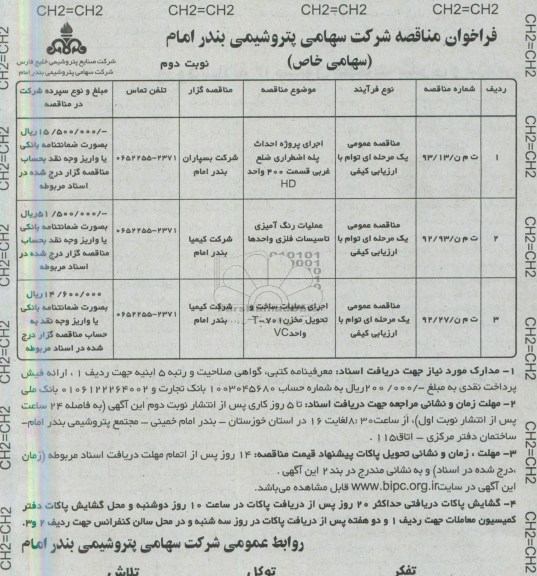 CH2=CH2 CH2=CH2 CH2=CH2 CH2=CH2
فراخوان مناقصه شرکت سهامی پتروشیمی بندر امام
(سهامی خاص)
نوبت دوم
شرکت صنایع پتروشیمی خلیج فارس
شرکت سهامی پتروشیمی بندر امام
ردیف شماره مناقصه نوع فرآیند موضوع مناقصه مناقصه گزار تلفن تماس مبلغ و نوع سپرده شرکت در مناقصه
۱ ت م ن/۹۳/۱۳ مناقصه عمومی یک مرحله ای توام با ارزیابی کیفی اجرای پروژه احداث پله اضطراری ضلع غربی قسمت ۴۰۰ واحد HD شرکت بسپاران بندر امام ۰۶۵۲۲۵۵-۲۳۷۱ -/۱۵/۵۰۰/۰۰۰ریال بصورت ضمانتنامه بانکی یا واریز وجه نقد بحساب مناقصه گزار درج شده در اسناد مربوطه
۲ ت م ن/۹۲/۹۳ مناقصه عمومی یک مرحله ای توام با ارزیابی کیفی عملیات رنگ آمیزی تاسیسات فلزی واحدها شرکت کیمیا بندر امام ۰۶۵۲۲۵۵-۲۳۷۱ -/۵۱/۵۰۰/۰۰۰ریال بصورت ضمانتنامه بانکی یا واریز وجه نقد بحساب مناقصه گزار درج شده در اسناد مربوطه
۳ ت م ن/۹۲/۲۷ مناقصه عمومی یک مرحله ای توام با ارزیابی کیفی اجرای عملیات ساخت و تحویل مخزن T-۷۰۱ واحد VC شرکت کیمیا بندر امام ۰۶۵۲۲۵۵-۲۳۷۱ ۱۴/۶۰۰/۰۰۰ریال بصورت ضمانتنامه بانکی یا واریز وجه نقد به حساب مناقصه گزار درج شده در اسناد مربوطه
۱- مدارک مورد نیاز جهت دریافت اسناد: معرفینامه کتبی، گواهی صلاحیت و رتبه ۵ ابنیه جهت ردیف ۱ ، ارائه فیش
پرداخت نقدی به مبلغ -/۲۰۰/۰۰۰ریال به شماره حساب ۱۰۰۳۰۴۵۶۸۰ بانک تجارت و ۰۱۰۶۱۲۲۲۶۴۰۰۲ بانک ملی
۲- مهلت زمان و نشانی مراجعه جهت دریافت اسناد: تا ۵ روز کاری پس از انتشار نوبت دوم این آگهی (به فاصله ۲۴ ساعت
پس از انتشار نوبت اول)، از ساعت ۸:۳۰ لغایت ۱۶ در استان خوزستان - بندر امام خمینی - مجتمع پتروشیمی بندر امام-
ساختمان دفتر مرکزی - اتاق۱۱۵ .
۳- مهلت ، زمان و نشانی تحویل پاکات پیشنهاد قیمت مناقصه: ۱۴ روز پس از اتمام مهلت دریافت اسناد مربوطه (زمان
درج شده در اسناد) و به نشانی مندرج در بند۲ این آگهی .
این آگهی در سایت www.bipc.org.ir قابل مشاهده می‌باشد.
۴- گشایش پاکات دریافتی حداکثر ۲۰ روز پس از دریافت پاکات در ساعت ۱۰ روز دوشنبه و محل گشایش پاکات دفتر
کمیسیون معاملات جهت ردیف ۱ و دو هفته پس از دریافت پاکات در روز سه شنبه و در محل سالن کنفرانس جهت ردیف ۲ و۳.
روابط عمومی شرکت سهامی پتروشیمی بندر امام
تفکر توکل تلاش